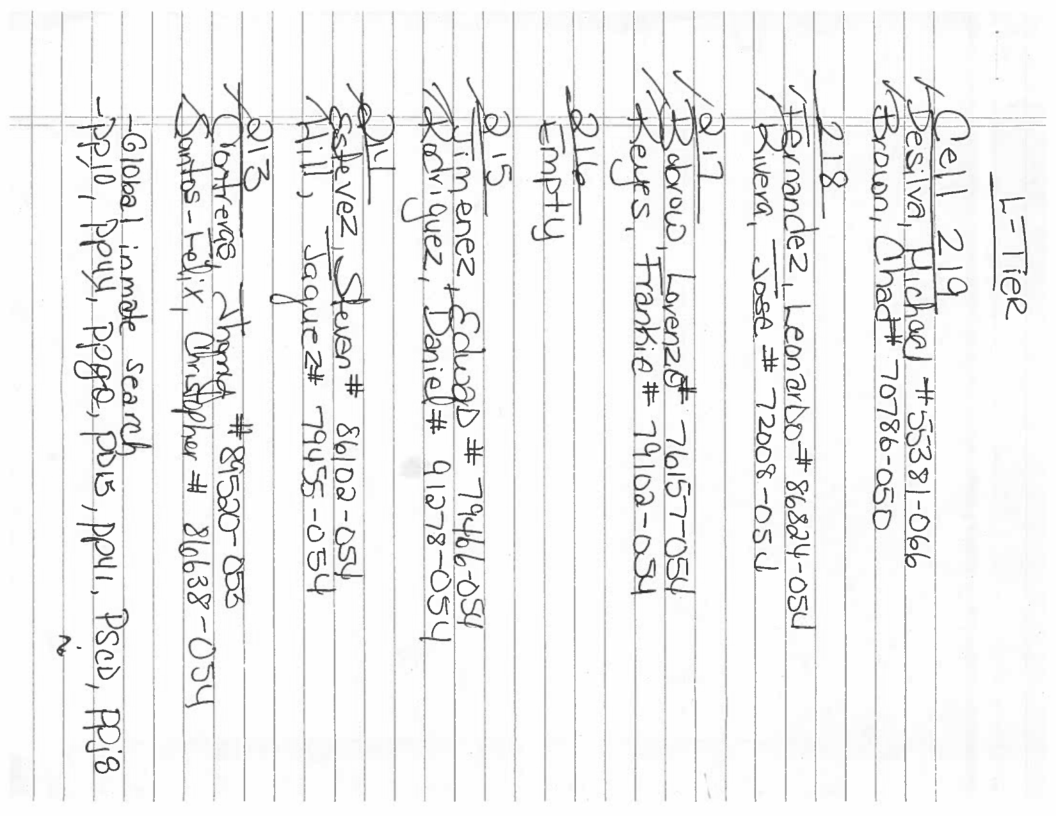 L-TIER
Cell 219
Desilva, Michael #55381-066
Brown, Chad# 70786-050
218
Fernandez, Leonardo# 86824-054
Rivera, Jose # 72008-054
217
Babrow, Lorenzo# 76157-054
Reyes, Frankie# 79102-054
216
Empty
215
Jimenez, Edward # 79466-054
Rodriguez, Daniel# 91278-054
214
Estevez, Steven# 86102-054
Hill, Jaquez# 79455-054
213
Contreras #89520-053
Santos-Felix, Christopher # 86638-054
-Global inmate search
-pp10, pp44, ppg0, pp15, pp41, PSCD, ppj8